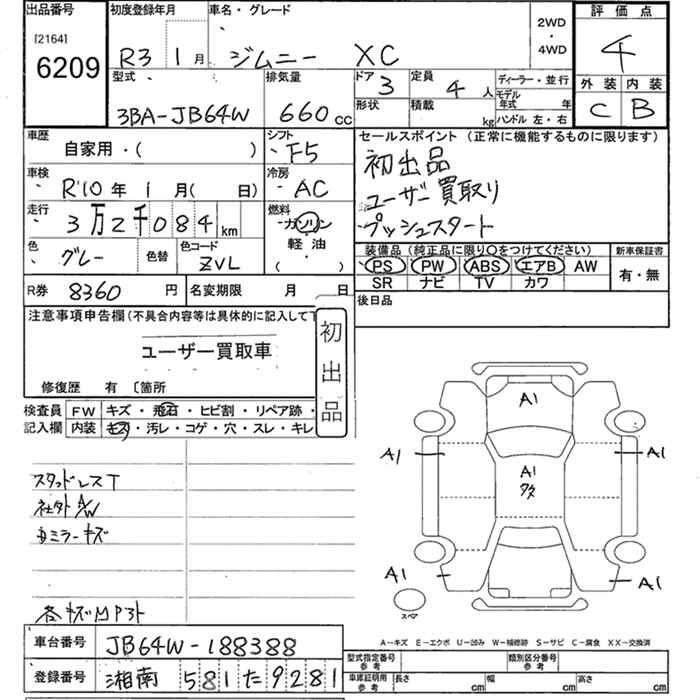 出品番号
[2164]
6209
初度登録年月
R3 1月
車名・グレード
ジムニー XC
2WD
・
4WD
評価点
4
外装 内装
C B
型式
3BA-JB64W
排気量
660cc
ドア
3
定員
4人
形状
積載
kg
ディーラー・並行
モデル年式 年
ハンドル 左・右
車歴
自家用・( )
シフト
F5
セールスポイント(正常に機能するものに限ります)
初出品
ユーザー買取り
プッシュスタート
車検
R'10年 1月( 日)
冷房
AC
走行
3万2千084km
燃料
ガソリン
軽油
( )
色
グレー
色替
色コード
ZVL
装備品(純正品に限り○をつけてください)
PS PW ABS エアB AW
SR ナビ TV カワ
新車保証書
有・無
R券 8360円
名変期限 月 日
後日品
注意事項申告欄(不具合内容等は具体的に記入して下
ユーザー買取車
初出品
修復歴 有 〔箇所
検査員記入欄
FW キズ・飛石・ヒビ割・リペア跡・
内装 キズ・汚レ・コゲ・穴・スレ・キレ
スタッドレスT
社外A/W
キズMP3ト
A1
A1
A1
A1
タタ
A1
A1
スペア
A-キズ E-エクボ U-凹み W-補修跡 S-サビ C-腐食 XX-交換済
車台番号 JB64W-188388
型式指定番号 参考
類別区分番号 参考
登録番号 湘南 581 た 9281
車庫証明用 参考
長さ cm 幅 cm 高さ cm